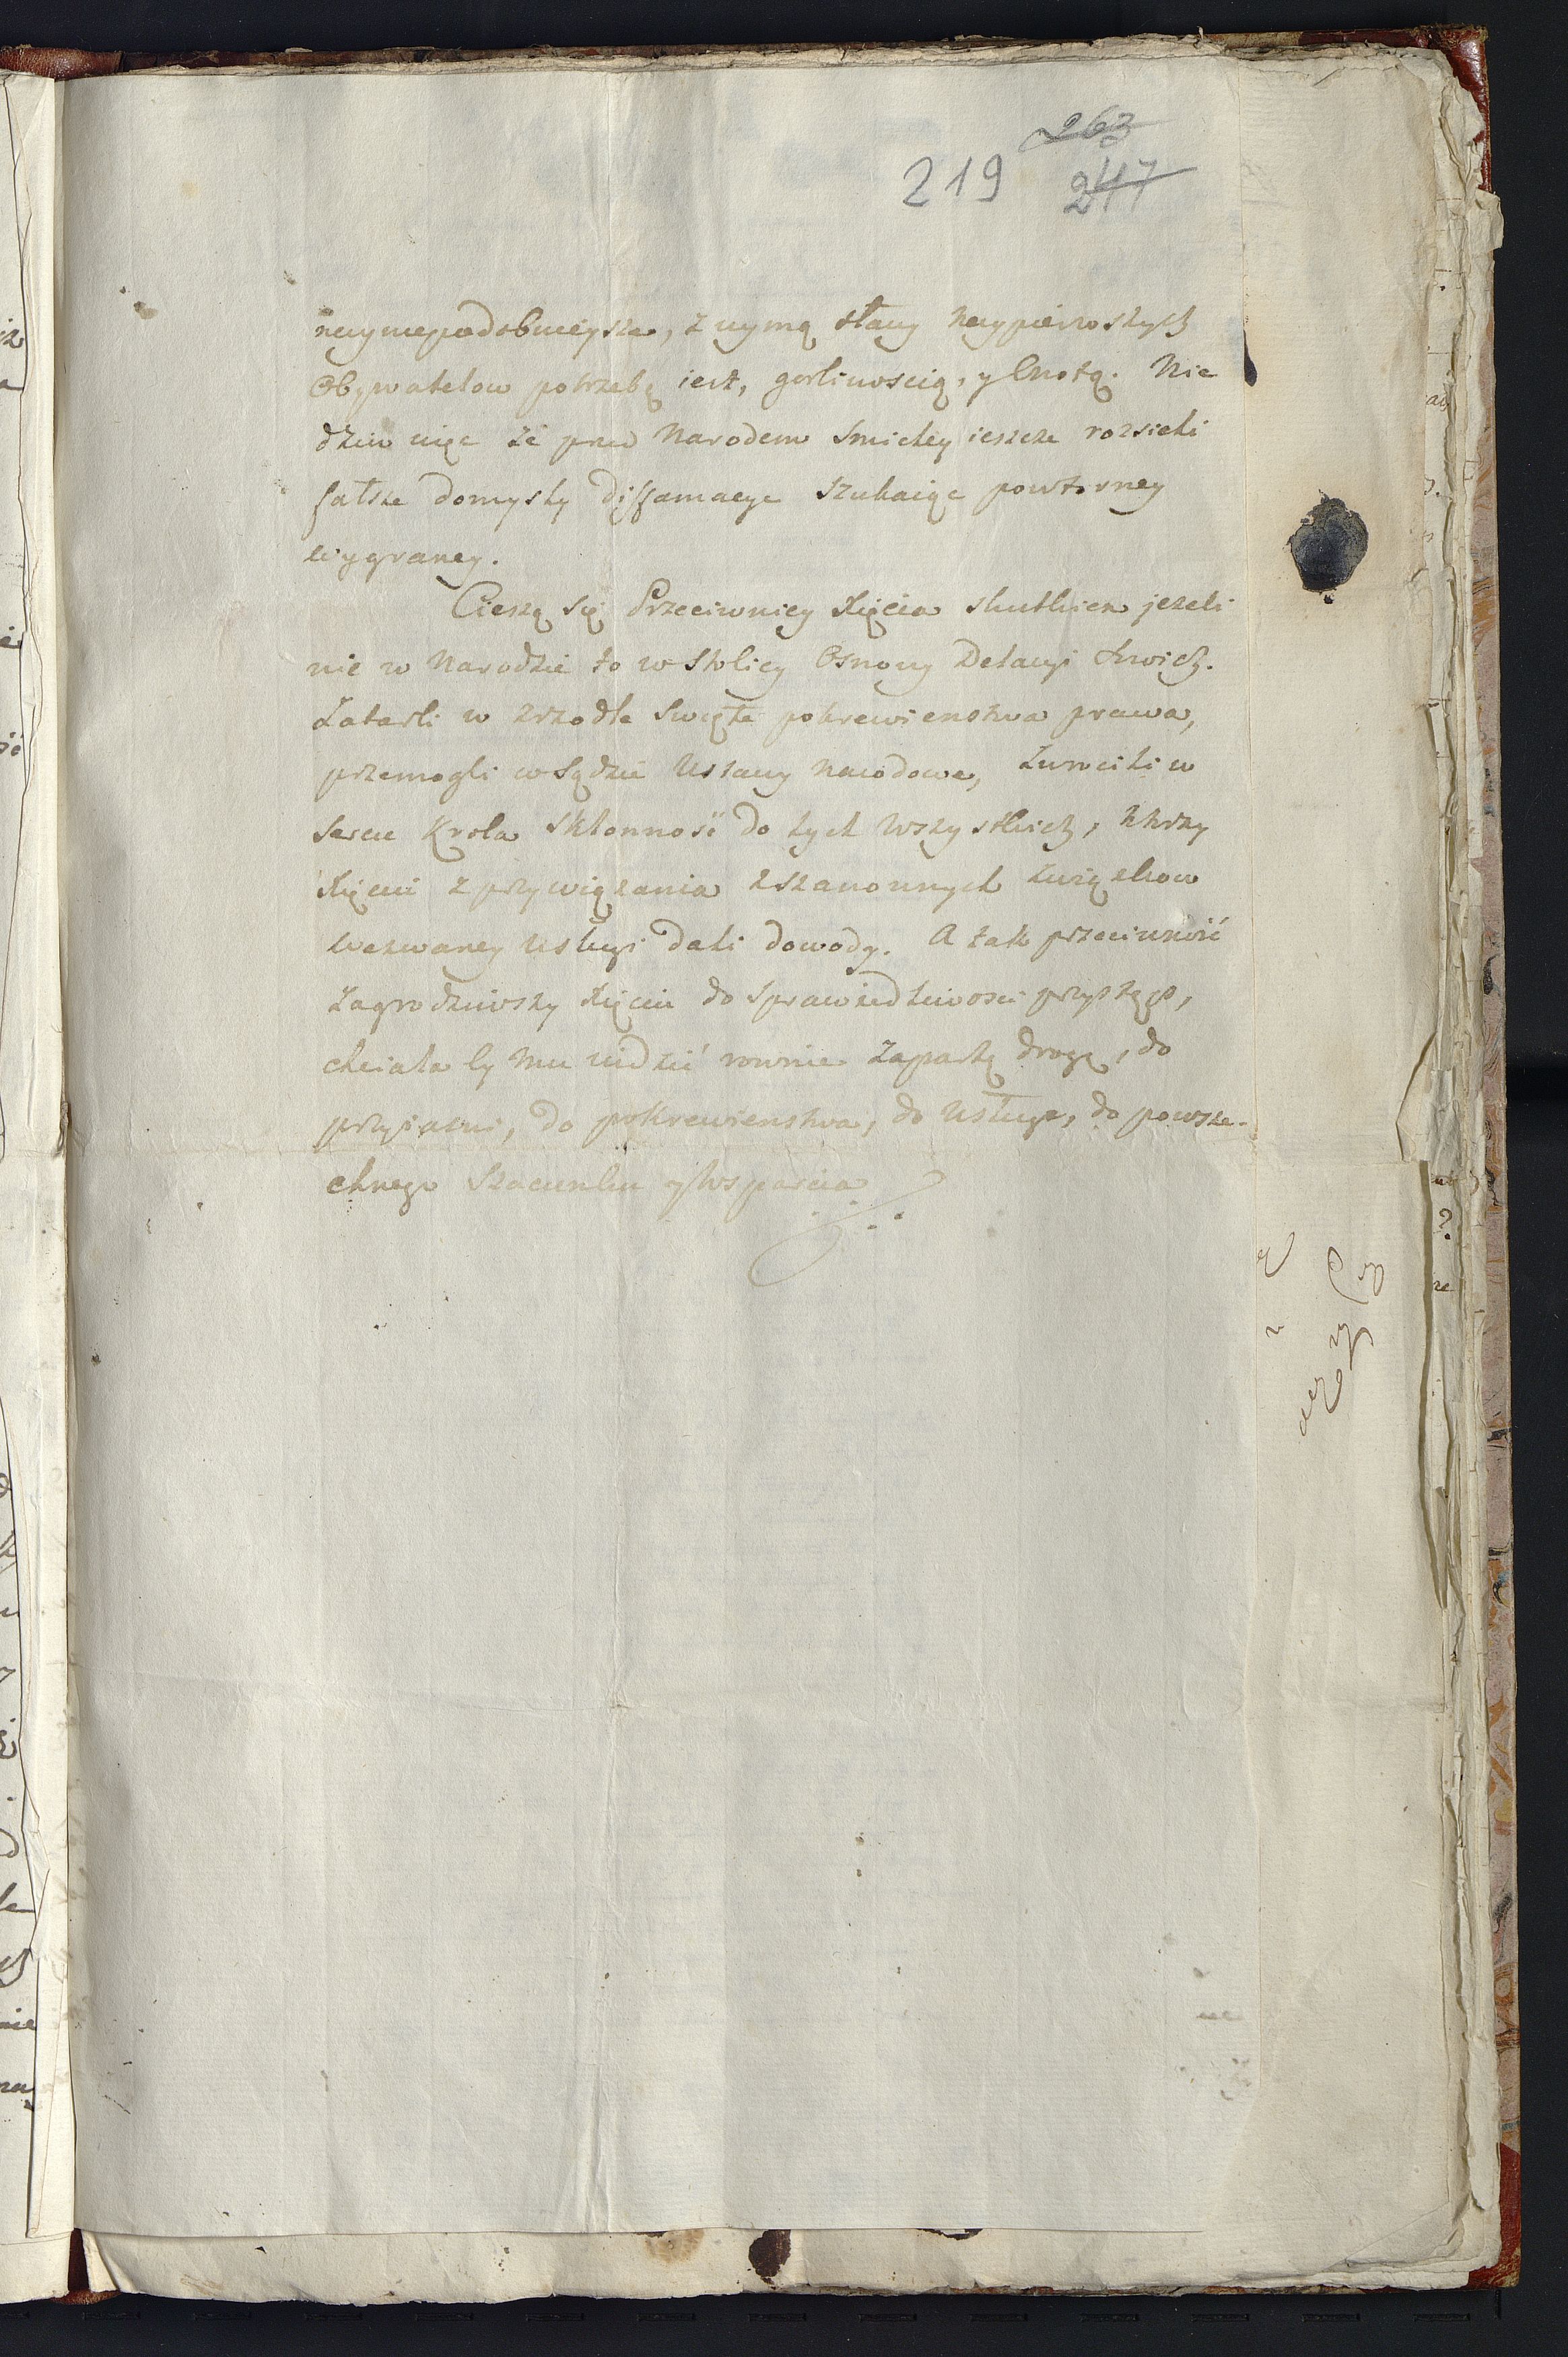 263
219 247
nayniepodobnieysze, z uymą sławy naypierwszych
Obywatelow potrzebą iest, gorliwoscią, y Cnotą. Nie
dziw więc że przed Narodem smieley ieszcze rozsieli
fałsze domysły diffamacye szukaiąc powtorney
wygraney.
Cieszą się Przeciwnicy Xięcia skutkiem jezeli
nie w Narodzie to w Stolicy Osnowy Delacyi
Zatarli w zrzodle swięte pokrewienstwa prawa,
przemogli w Sądzie Ustawy Narodowe, Zwrocili w
sercu Krola skłonnosć do tych wszystkich, ktorzy
Xięciu z przywiązania z szanownych związkow
wezwaney usługi dali dowody. A tak przeciwność
zagrodziwszy Xięciu do sprawiedliwosci przystęp,
chciała by mu widzić rownie zapartą drogę, do
przyiazni, do pokrewienstwa, do usługi, do powsze-
chnego szacunku y wsparcia